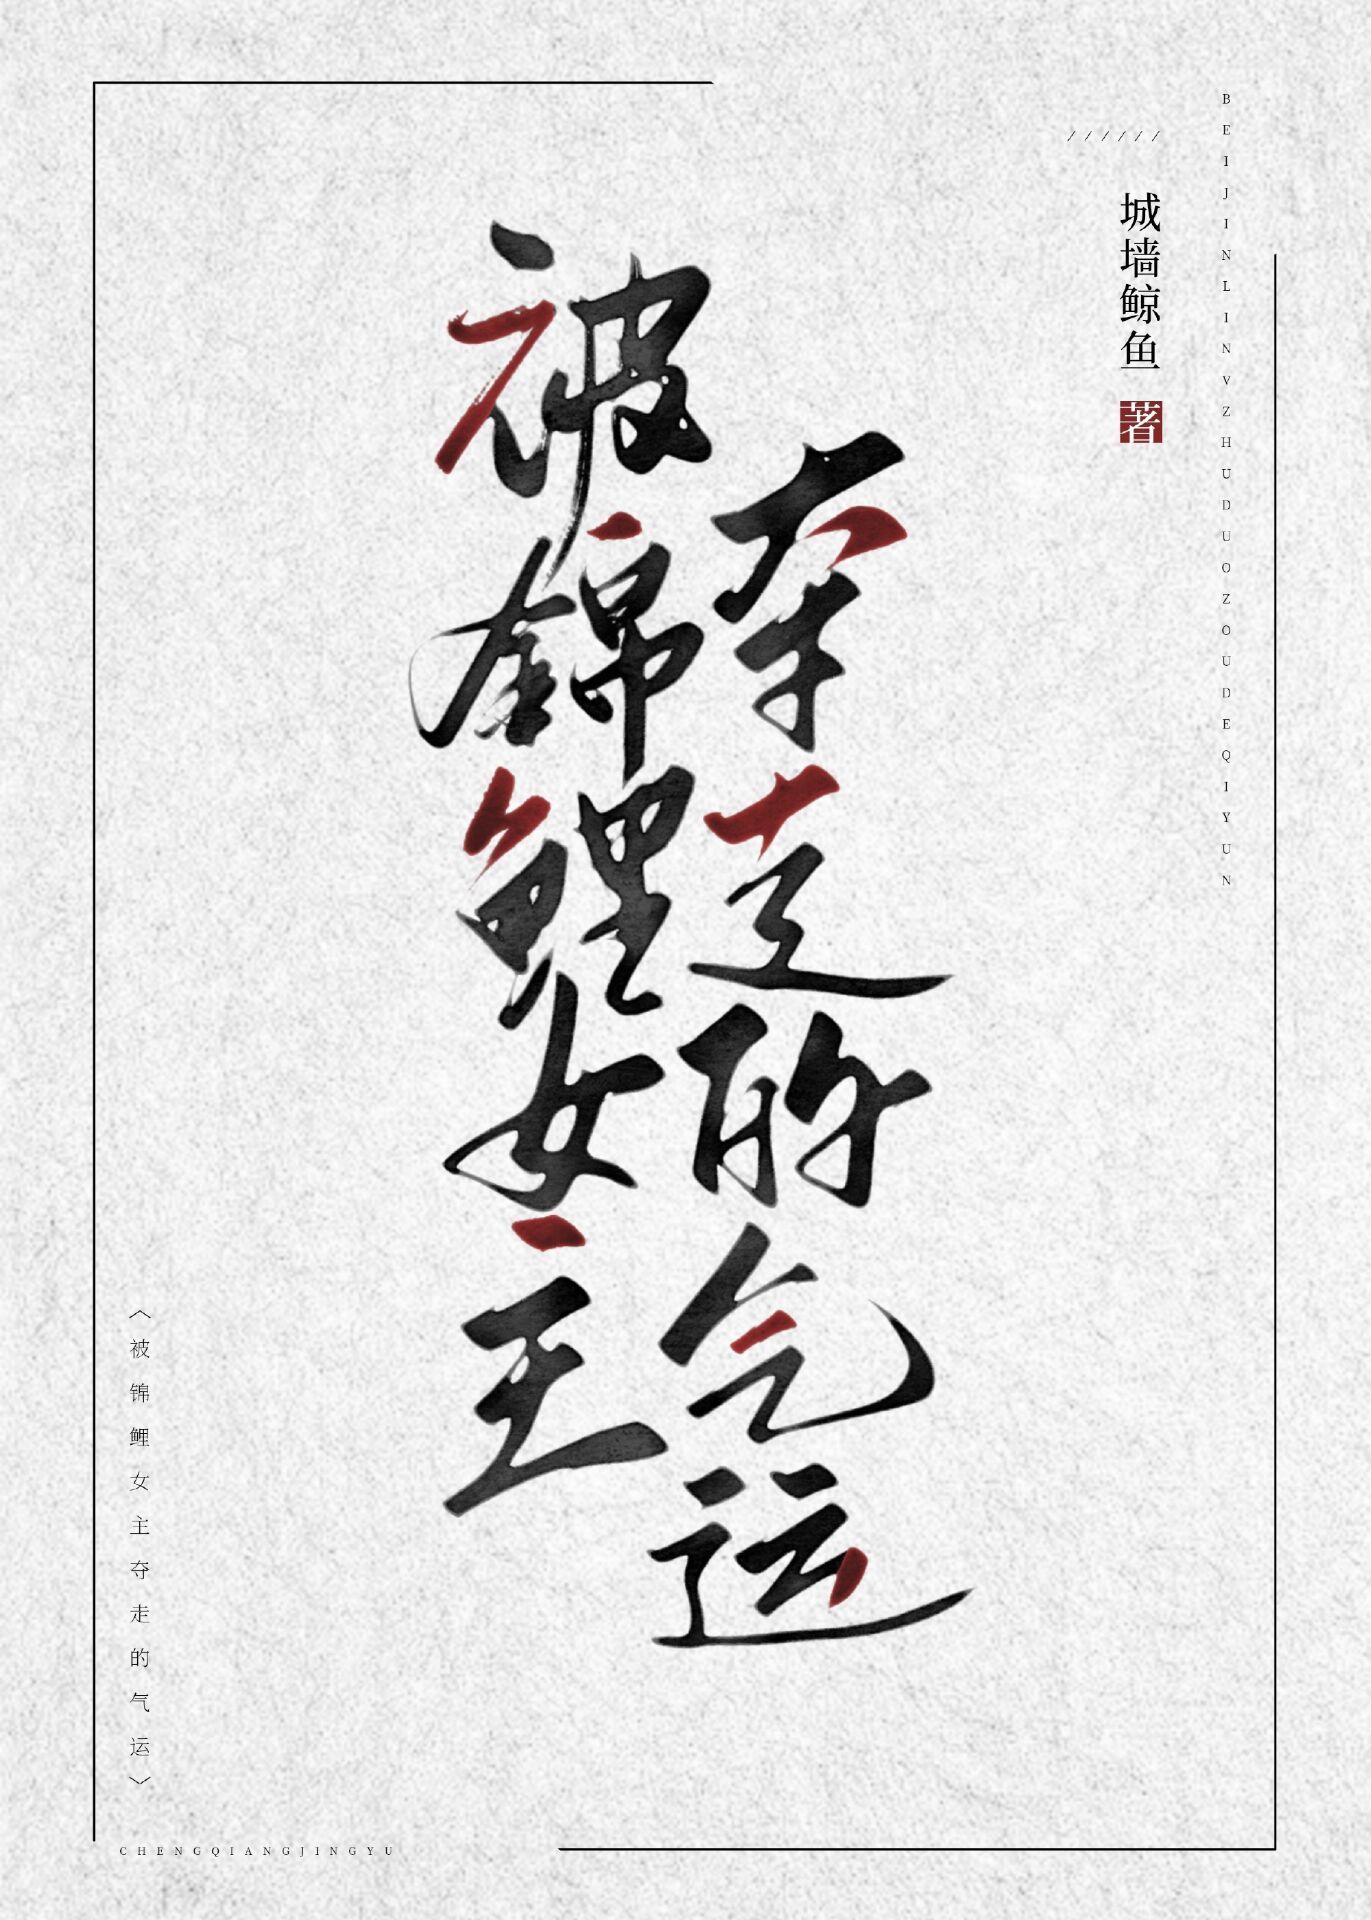 被錦鲤女主
夺走的气运
城墙鲸鱼 著
BEIJINLINVZHUDUOZOUDEQIYUN
〈被锦鲤女主夺走的气运〉
CHENGQIANGJINGYU
//////